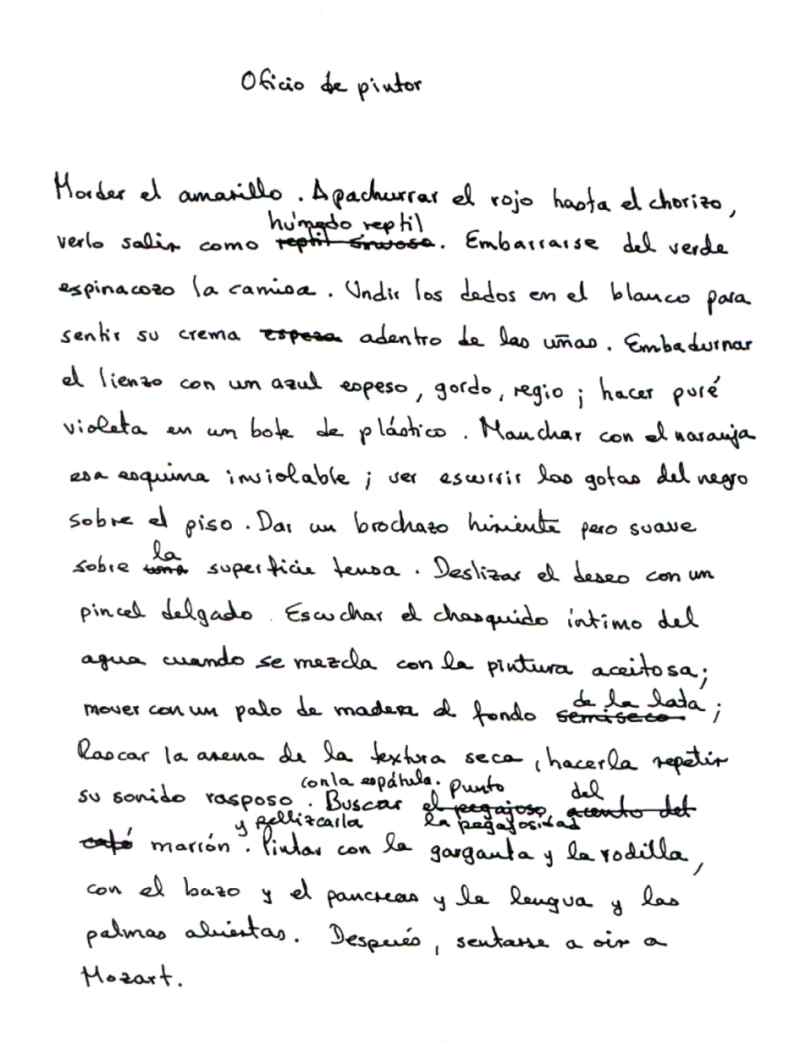 Oficio de pintor
Morder el amarillo. Apachurrar el rojo hasta el chorizo,
húmedo reptil
verlo salir como reptil sinuoso. Embarrarse del verde
espinacozo la camisa. Undir los dedos en el blanco para
sentir su crema espesa adentro de las uñas. Embadurnar
el lienzo con un azul espeso, gordo, regio; hacer puré
violeta en un bote de plástico. Manchar con el naranja
esa esquina inviolable; ver escurrir las gotas del negro
sobre el piso. Dar un brochazo hiriente pero suave
la
sobre una superficie tensa. Deslizar el deseo con un
pincel delgado. Escuchar el chasquido íntimo del
agua cuando se mezcla con la pintura aceitosa;
de la lata
mover con un palo de madera el fondo semiseco;
Rascar la arena de la textura seca, hacerla repetir
con la espátula. punto del
su sonido rasposo. Buscar el pegajoso acento del
y pellizcarla la pegajosidad
café marrón. Pintar con la garganta y la rodilla,
con el bazo y el pancreas y la lengua y las
palmas abiertas. Después, sentarse a oir a
Mozart.